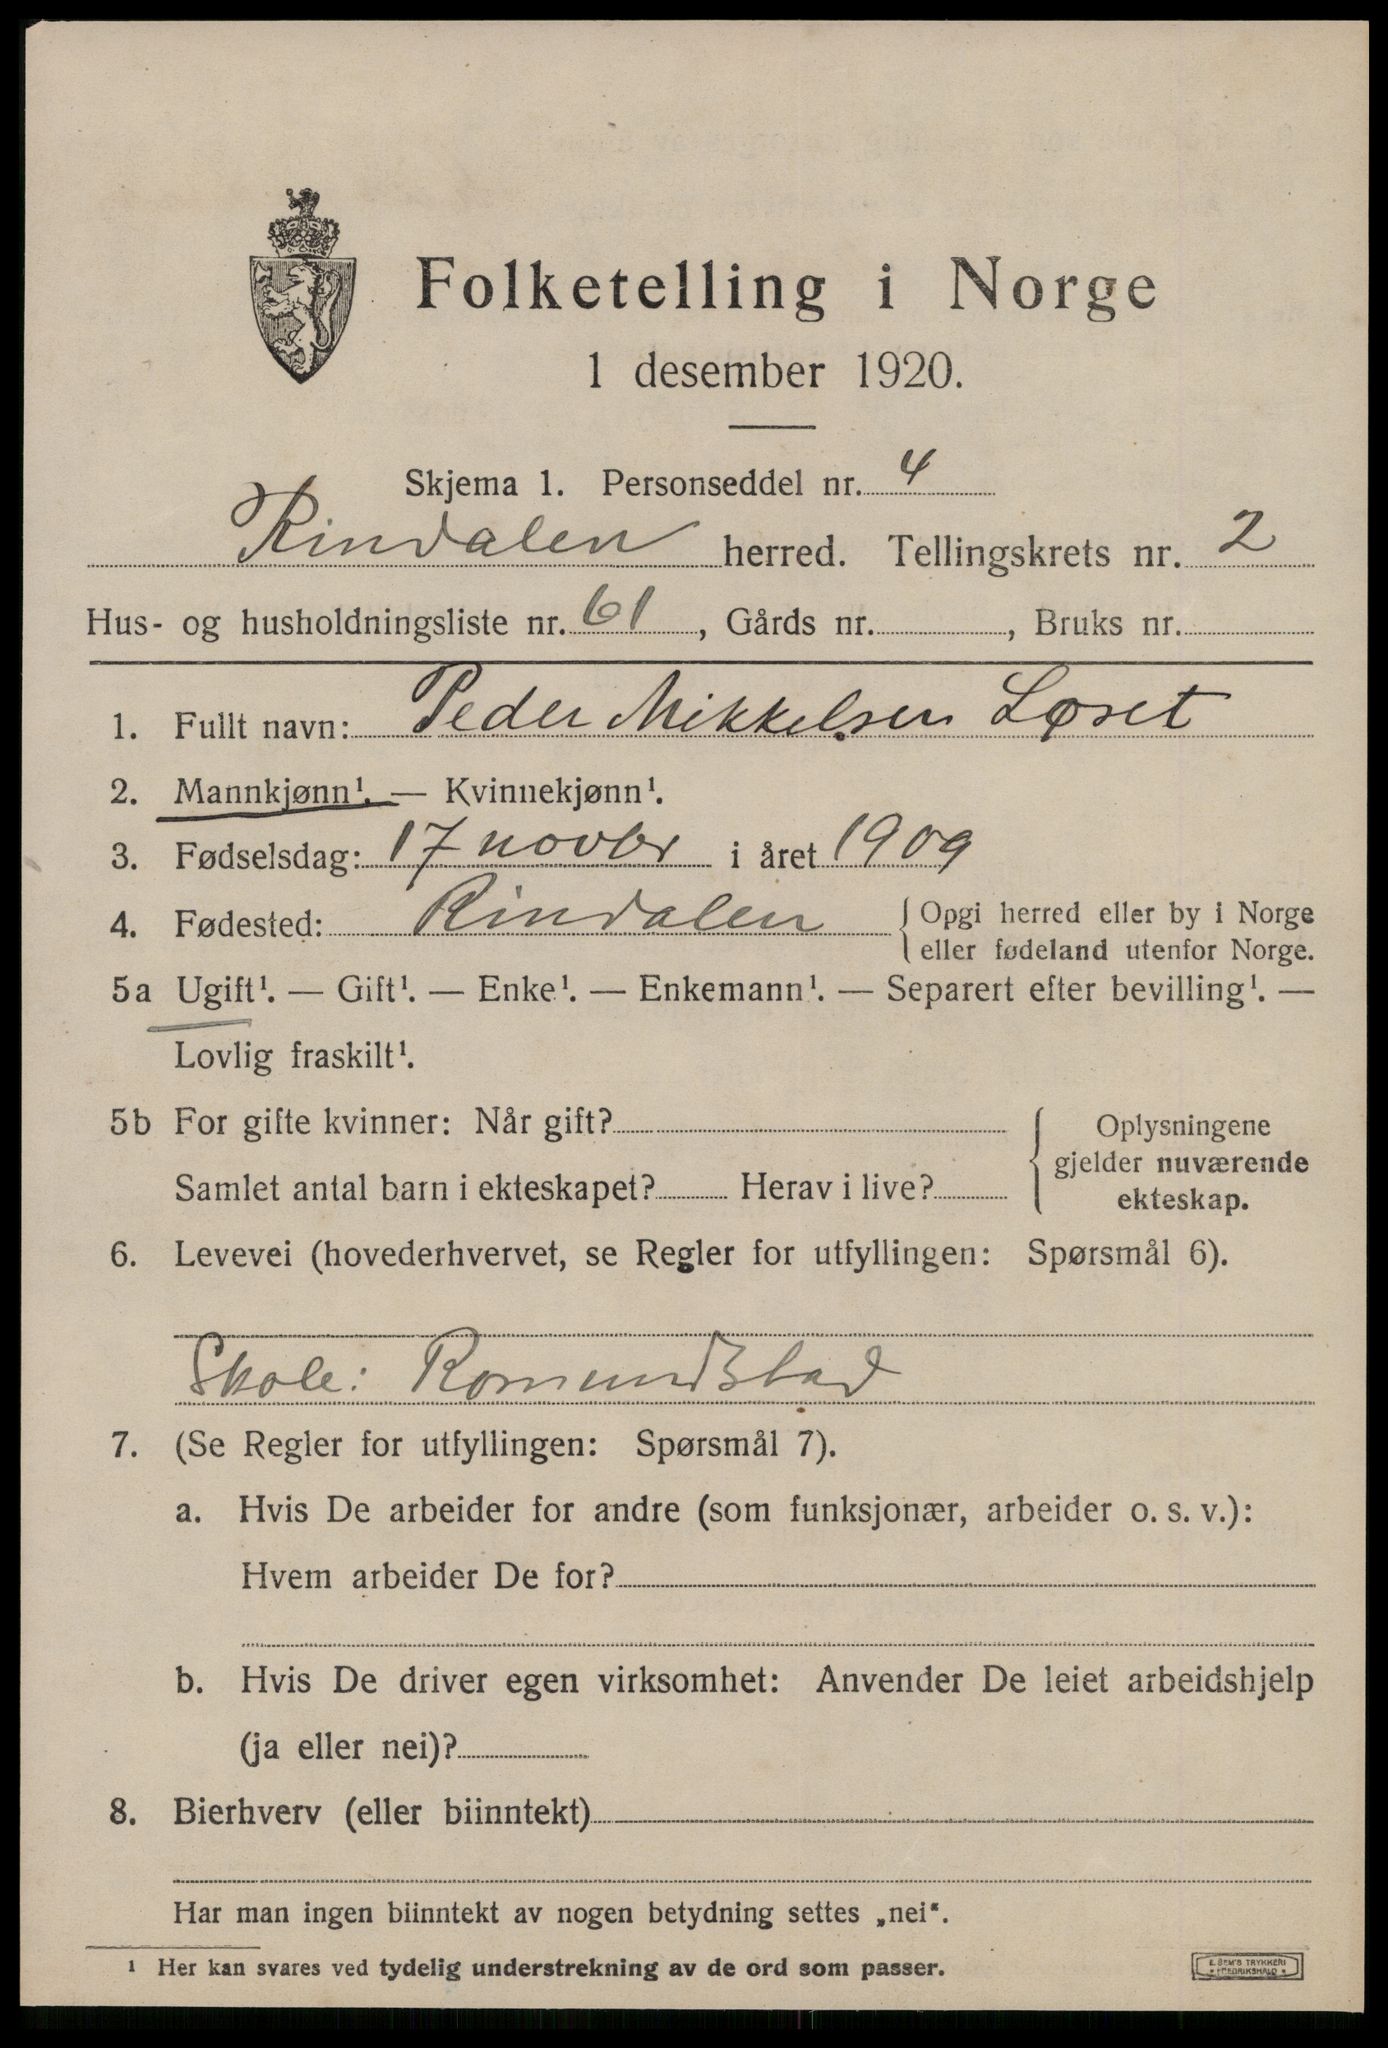 Folketelling i Norge
1 desember 1920.
Skjema 1. Personseddel nr. 4
Rindalen herred. Tellingskrets nr. 2
Hus- og husholdningsliste nr. 61, Gårds nr. , Bruks nr.
1. Fullt navn: Peder Mikkelsen Løset
2. Mannkjønn¹. — Kvinnekjønn¹.
3. Fødselsdag: 17 novbr i året 1909
4. Fødested: Rindalen { Opgi herred eller by i Norge
eller fødeland utenfor Norge.
5a Ugift¹. — Gift¹. — Enke¹. — Enkemann¹. — Separert efter bevilling¹. —
Lovlig fraskilt¹.
5b For gifte kvinner: Når gift?
Samlet antal barn i ekteskapet? Herav i live?
Oplysningene
gjelder nuværende
ekteskap.
6. Levevei (hovederhvervet, se Regler for utfyllingen: Spørsmål 6).
Skole: Romundstad
7. (Se Regler for utfyllingen: Spørsmål 7).
a. Hvis De arbeider for andre (som funksjonær, arbeider o. s. v.):
Hvem arbeider De for?
b. Hvis De driver egen virksomhet: Anvender De leiet arbeidshjelp
(ja eller nei)?
8. Bierhverv (eller biinntekt)
Har man ingen biinntekt av nogen betydning settes „nei“.
¹ Her kan svares ved tydelig understrekning av de ord som passer.
E. SEM'S TRYKKERI
FREDRIKSHALD